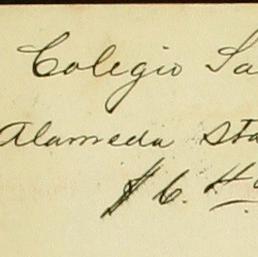 Colegio Sa
Alameda Sta